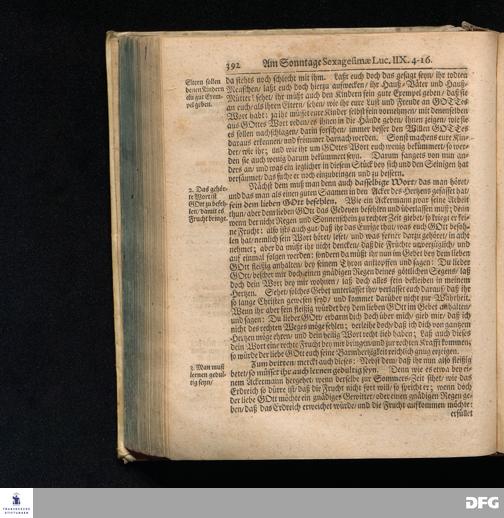 392 Am Sonntage Sexagesimæ Luc. IIX. 4-16.
Eltern sollen
denen Kindern
ein gut Exem-
pel geben.
da stehts noch schlecht mit ihm. Laßt euch doch das gesagt seyn/ ihr todten
Menschen/ laßt euch doch hierzu aufwecken/ ihr Hauß-Väter und Hauß-
Mütter! sehet/ ihr müßt auch den Kindern sein gute Exempel geben/ daß sie
an euch/ als ihren Eltern/ sehen/ wie ihr eure Lust und Freude an GOTTes
Wort habt; ja ihr müßt eure Kinder selbst fein vornehmen/ mit denenselben
aus GOttes Wort reden/ es ihnen in die Hände geben/ ihnen zeigen/ wie sie
es sollen nachschlagen/ darin forschen/ immer besser den Willen GOTTes
daraus erkennen/ und frömmer darnach werden. Sonst machens eure Kin-
der/ wie ihr; und wie ihr um GOttes Wort euch wenig bekümmert/ so wer-
den sie auch wenig darum bekümmert seyn. Darum fangets von nun an-
ders an/ und was ein jeglicher in diesem Stück bey sich und den Seinigen hat
versäumet/ das suche er noch einzubringen und zu bessern.
2. Das gehör-
te Wort ist
GOtt zu befeh-
len/ damit es
Frucht bringe.
Nächst dem muß man denn auch dasselbige Wort/ das man höret/
und das man als einen guten Saamen in den Acker des Hertzens gefasset hat/
fein dem lieben GOtt befehlen. Wie ein Ackermann zwar seine Arbeit
thun/ aber dem lieben GOtt das Gedeyen befehlen und überlassen muß; denn
wenn der nicht Regen und Sonnenschein zu rechter Zeit giebet/ so kriegt er kei-
ne Frucht: also ists auch gut/ daß ihr das Eurige thut/ was euch GOtt befoh-
len hat/ nemlich sein Wort höret/ leset/ und was ferner darzu gehöret/ in acht
nehmet; aber da müßt ihr nicht dencken/ daß die Früchte unverzüglich/ und
auf einmal folgen werden: sondern da müßt ihr nun im Gebet bey dem lieben
GOtt fleißig anhalten/ bey seinem Thron anklopffen und sagen: Du lieber
GOtt/ beschere mir doch einen gnädigen Regen deines göttlichen Segens/ laß
doch dein Wort bey mir wohnen/ laß doch alles fein bekleiben in meinem
Hertzen. Sehet/ solches Gebet unterlasset ihr/ verlasset euch darauf/ daß ihr
so lange Christen gewesen seyd/ und kommet darüber nicht zur Wahrheit.
Wenn ihr aber fein fleißig würdet bey dem lieben GOtt im Gebet anhalten/
und sagen: Du lieber GOtt/ erbarm dich doch über mich/ gieb mir/ daß ich
nicht des rechten Weges möge fehlen; verleihe doch/ daß ich dich von gantzem
Hertzen möge ehren/ und dein heilig Wort recht lieb haben; Laß auch dieses
dein Wort eine rechte Frucht bey mir bringen/ und zur rechten Krafft kommen/
so würde der liebe GOtt euch seine Barmhertzigkeit reichlich gnug erzeigen.
3. Man muß
lernen gedul-
tig seyn/
Zum dritten: merckt auch dieses: Nebst dem/ daß ihr nun also fleißig
betet/ so müsset ihr auch lernen gedultig seyn. Denn wie es etwa bey ei-
nem Ackermann hergehet/ wenn derselbe zur Sommers-Zeit siehet/ wie das
Erdreich so dürre ist/ daß die Frucht nicht fort will/ so spricht er; wenn doch
der liebe GOtt möchte ein gnädiges Gewitter/ oder einen gnädigen Regen ge-
ben/ daß das Erdreich erweichet würde/ und die Frucht aufkommen möchte:
erfüllet
FRANCKESCHE
STIFTUNGEN
DFG